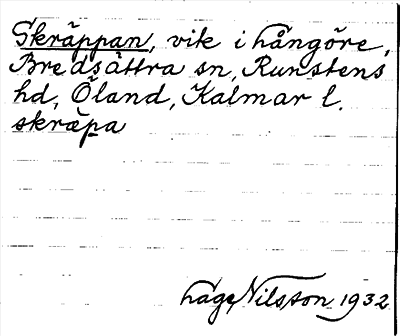 Skräppan, vik i hångöre,
Bredsättra sn, Runstens
hd, Öland, Kalmar l.
skräpa
håge Nilsson 1932